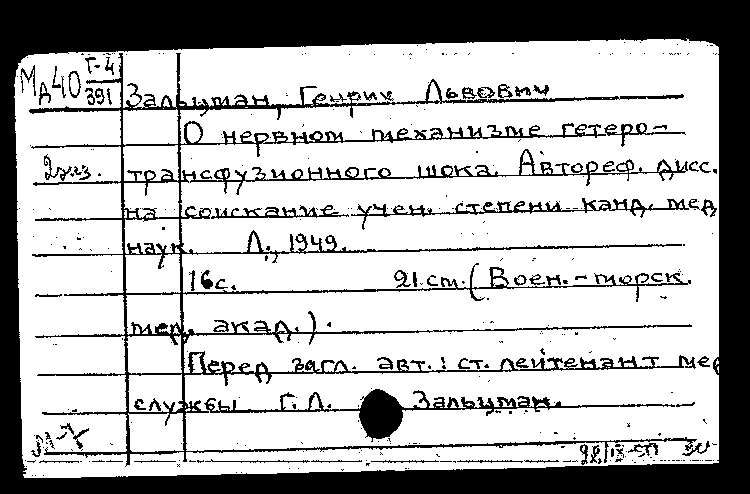 Мд40 Г-4
391
Зальцман, Генрих Львович
О нервном механизме гетеро-
2 экз. трансфузионного шока. Автореф. дисс.
на соискание учен. степени канд. мед
наук. Л., 1949.
16с. 21 см. (Воен.-морск.
мед. акад.).
Перед загл. авт.: ст. лейтенант мед
службы Г.Л. Зальцман.
М-7